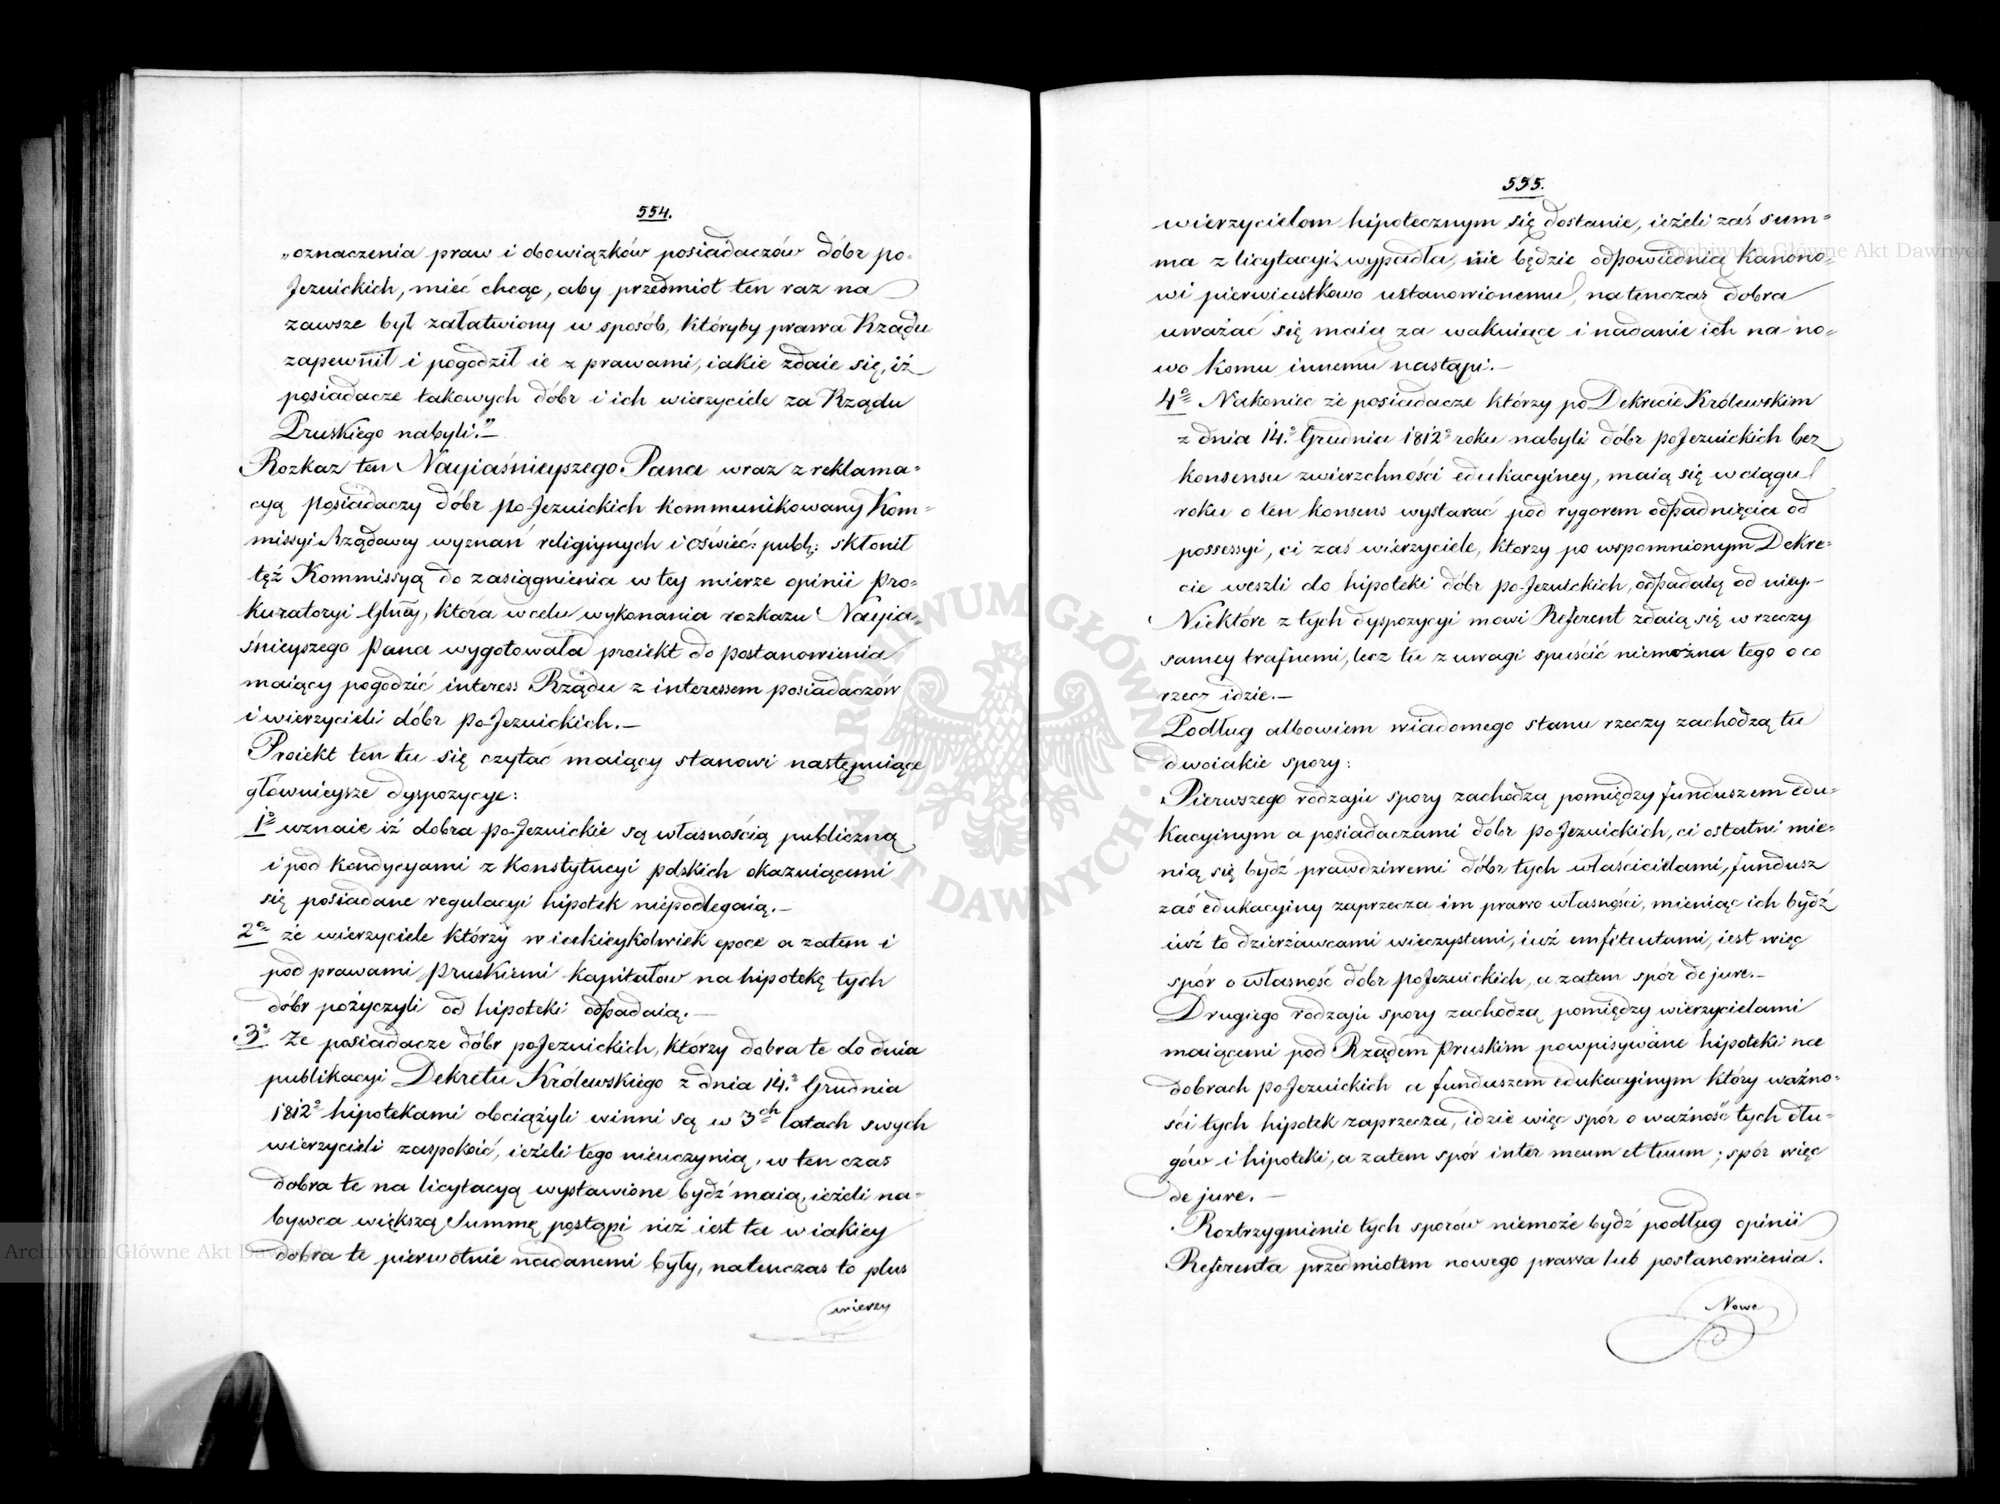 554.
„oznaczenia praw i obowiązków posiadaczów dóbr po-
Jezuickich, mieć chcąc, aby przedmiot ten raz na
zawsze był załatwiony w sposób, któryby prawa Rządu
zapewnił i pogodził ie z prawami, iakie zdaie się, iż
posiadacze takowych dóbr i ich wierzyciele za Rządu
Pruskiego nabyli."—
Rozkaz ten Nayiaśnieyszego Pana wraz z reklama=
cyą posiadaczy dóbr po-Jezuickich kommunikowany Kom=
missyi Rządowey wyznań religiynych i oświéc: publ: skłonił
też Kommissyą do zasiągnienia w tey mierze opinii Pro=
kuratoryi Głney, która w celu wykonania rozkazu Nayia=
śnieyszego Pana wygotowała proiekt do postanowienia
maiący pogodzić interess Rządu z interessem posiadaczów
i wierzycieli dóbr po-Jezuickich.—
Proiekt ten tu się czytać maiący stanowi następuiące
głównieysze dyspozycye:
1o uznaie iż dobra po-Jezuickie są własnością publiczną
i pod kondycyami z Konstytucyi polskich okazuiącemi
się posiadane regulacyi hipotek niepodlegaią.—
2o że wierzyciele którzy w iakieykolwiek epoce a zatem i
pod prawami pruskiemi kapitałow na hipotekę tych
dóbr pożyczyli od hipoteki odpadaią.—
3o że posiadacze dóbr poJezuickich, którzy dobra te do dnia
publikacyi Dekretu Królewskiego z dnia 14.o Grudnia
1812o hipotekami obciążyli winni są w 3ch latach swych
wierzycieli zaspokoić, ieżeli tego nieuczynią, w ten czas
dobra te na licytacyą wystawione bydź maią, ieżeli na=
bywca większą Summę postąpi niż iest ta w iakiey
dobra te pierwotnie nadanemi były, natenczas to plus
wierzy
555.
wierzycielom hipotecznym się dostanie, ieżeli zaś sum=
ma z licytacyi wypadła, nie będzie odpowiednią kanono=
wi pierwiastkowo ustanowionemu, natenczas dobra
uważać się maią za wakuiące i nadanie ich na no=
wo komu innemu nastąpi.—
4o Nakoniec że posiadacze którzy po Dekrecie Królewskim
z dnia 14.o Grudnia 1812o roku nabyli dóbr poJezuickich bez
konsensu zwierzchności edukacyiney, maią się w ciągu
roku o ten konsens wystarać pod rygorem odpadnięcia od
possessyi, ci zaś wierzyciele, ktorzy po wspomnionym Dekre=
cie weszli do hipoteki dóbr po-Jezuickich, odpadaią od niey.—
Niektóre z tych dyspozycyi mowi Referent zdaią się w rzeczy
samey trafnemi, lecz tu z uwagi spuścić niemożna tego o co
rzecz idzie.—
Podług albowiem wiadomego stanu rzeczy zachodzą tu
dwoiakie spory:
Pierwszego rodzaiu spory zachodzą pomiędzy funduszem edu=
kacyinym a posiadaczami dóbr poJezuickich, ci ostatni mie=
nią się bydź prawdziwemi dóbr tych właścicielami, fundusz
zaś edukacyiny zaprzecza im prawo własności, mieniąc ich bydź
iuż to dzierżawcami wieczystemi, iuż emfiteutami, iest więc
spór o własność dóbr poJezuickich, a zatem spór de jure.—
Drugiego rodzaiu spory zachodzą pomiędzy wierzycielami
maiącemi pod Rządem Pruskim powpisywane hipoteki na
dobrach poJezuickich a funduszem edukacyinym który ważno=
ści tych hipotek zaprzecza, idzie więc spór o ważność tych dłu=
gów i hipoteki, a zatem spór inter meum et tuum; spór więc
de jure.—
Roztrzygnienie tych sporów niemoże bydź podług opinii
Referenta przedmiotem nowego prawa lub postanowienia.
Nowe
Archiwum Główne Akt Dawnych
Archiwum Główne Akt Dawnych
ARCHIWUM GŁÓWNE AKT DAWNYCH